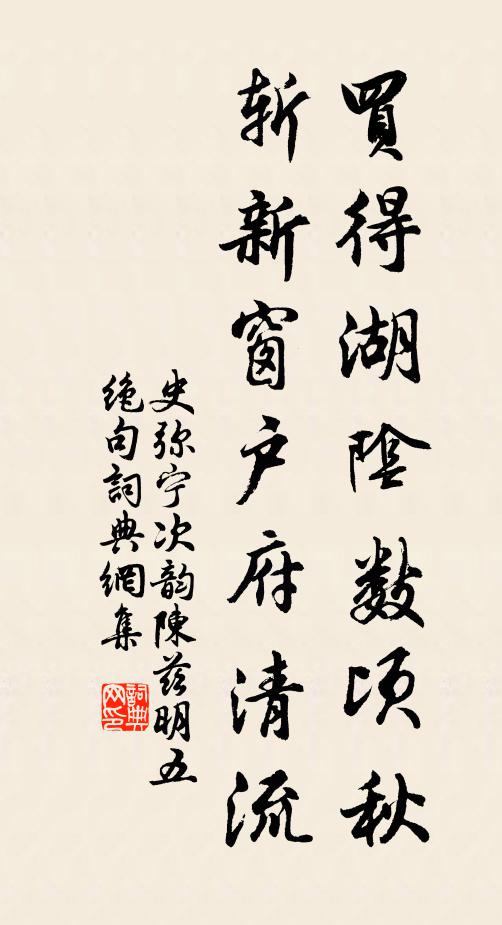 買得湖陰數頃秋
斬新窗戶府清流
史弥宁次韵陳茲明五
絶句詞典網集
詞典网印